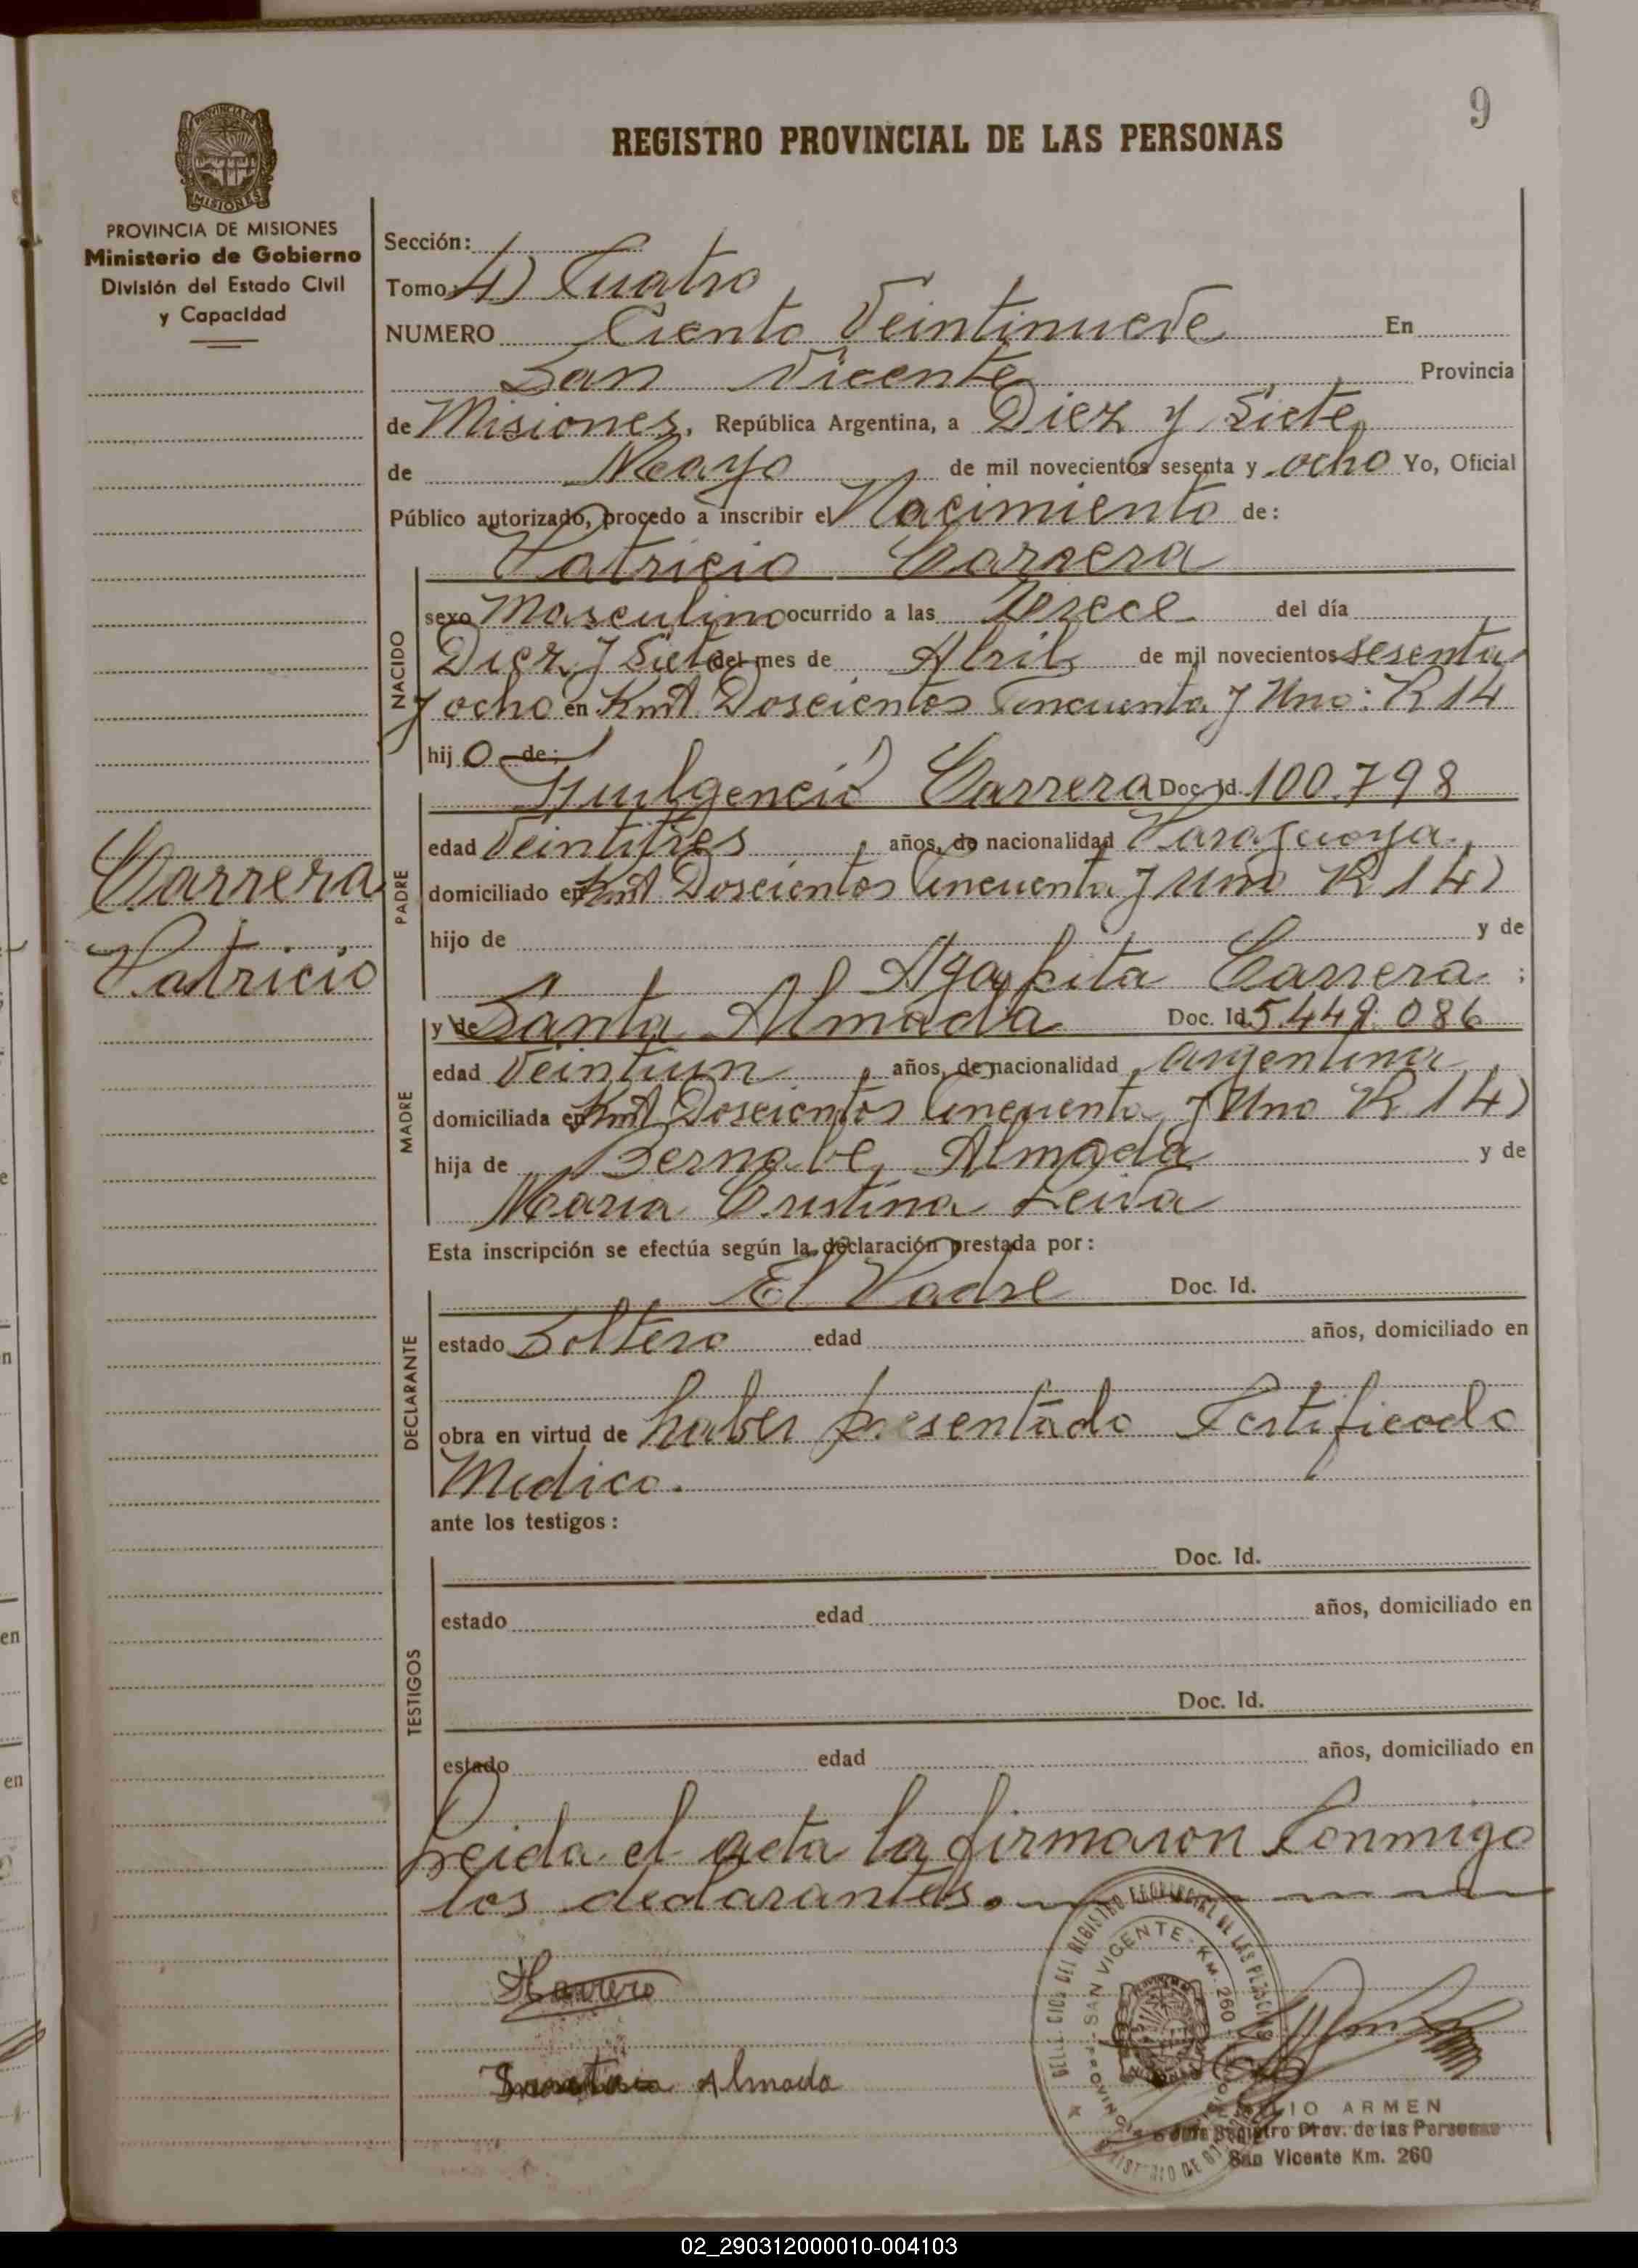 9
REGISTRO PROVINCIAL DE LAS PERSONAS
PROVINCIA DE MISIONES
Ministerio de Gobierno
División del Estado Civil
y Capacidad
Carrera
Patricio
Sección:
Tomo: 4) Cuatro
NUMERO Ciento Veintinueve En
San Vicente Provincia
de Misiones, República Argentina, a Diez y Siete
de Mayo de mil novecientos sesenta y ocho Yo, Oficial
Público autorizado, procedo a inscribir el Nacimiento de:
Patricio Carrera
NACIDO
sexo Masculino ocurrido a las Trece del día
Diez y Siete del mes de Abril de mil novecientos sesenta
y ocho en Kmt Doscientos Cincuenta y Uno: R 14
hijo de:
PADRE
Fulgencio Carrera Doc. Id. 100.798
edad Veintitres años, de nacionalidad Paraguaya
domiciliado en Kmt Doscientos Cincuenta y Uno R 14)
hijo de y de
Agapita Carrera ;
MADRE
y de Santa Almada Doc. Id. 5.449.086
edad Veintiun años, de nacionalidad argentina
domiciliada en Kmt Doscientos Cincuenta y Uno R 14)
hija de Bernabe Almada y de
Maria Cristina Leiva
Esta inscripción se efectúa según la declaración prestada por:
DECLARANTE
El Padre Doc. Id.
estado Soltero edad años, domiciliado en
obra en virtud de haber presentado Certificado
Medico.
ante los testigos:
TESTIGOS
Doc. Id.
estado edad años, domiciliado en
Doc. Id.
estado edad años, domiciliado en
Leida el acta la firmaron Conmigo
los declarantes.
Almada
SAN VICENTE - KM. 260
ARMEN
Registro Prov. de las Personas
San Vicente Km. 260
02_290312000010-004103